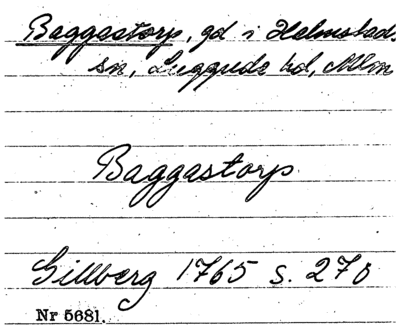 Baggastorp, gd i Halmstad.
sn, Luggude hd, Mlm
Baggastorp
Gillberg 1765 s. 270
Nr 5681.